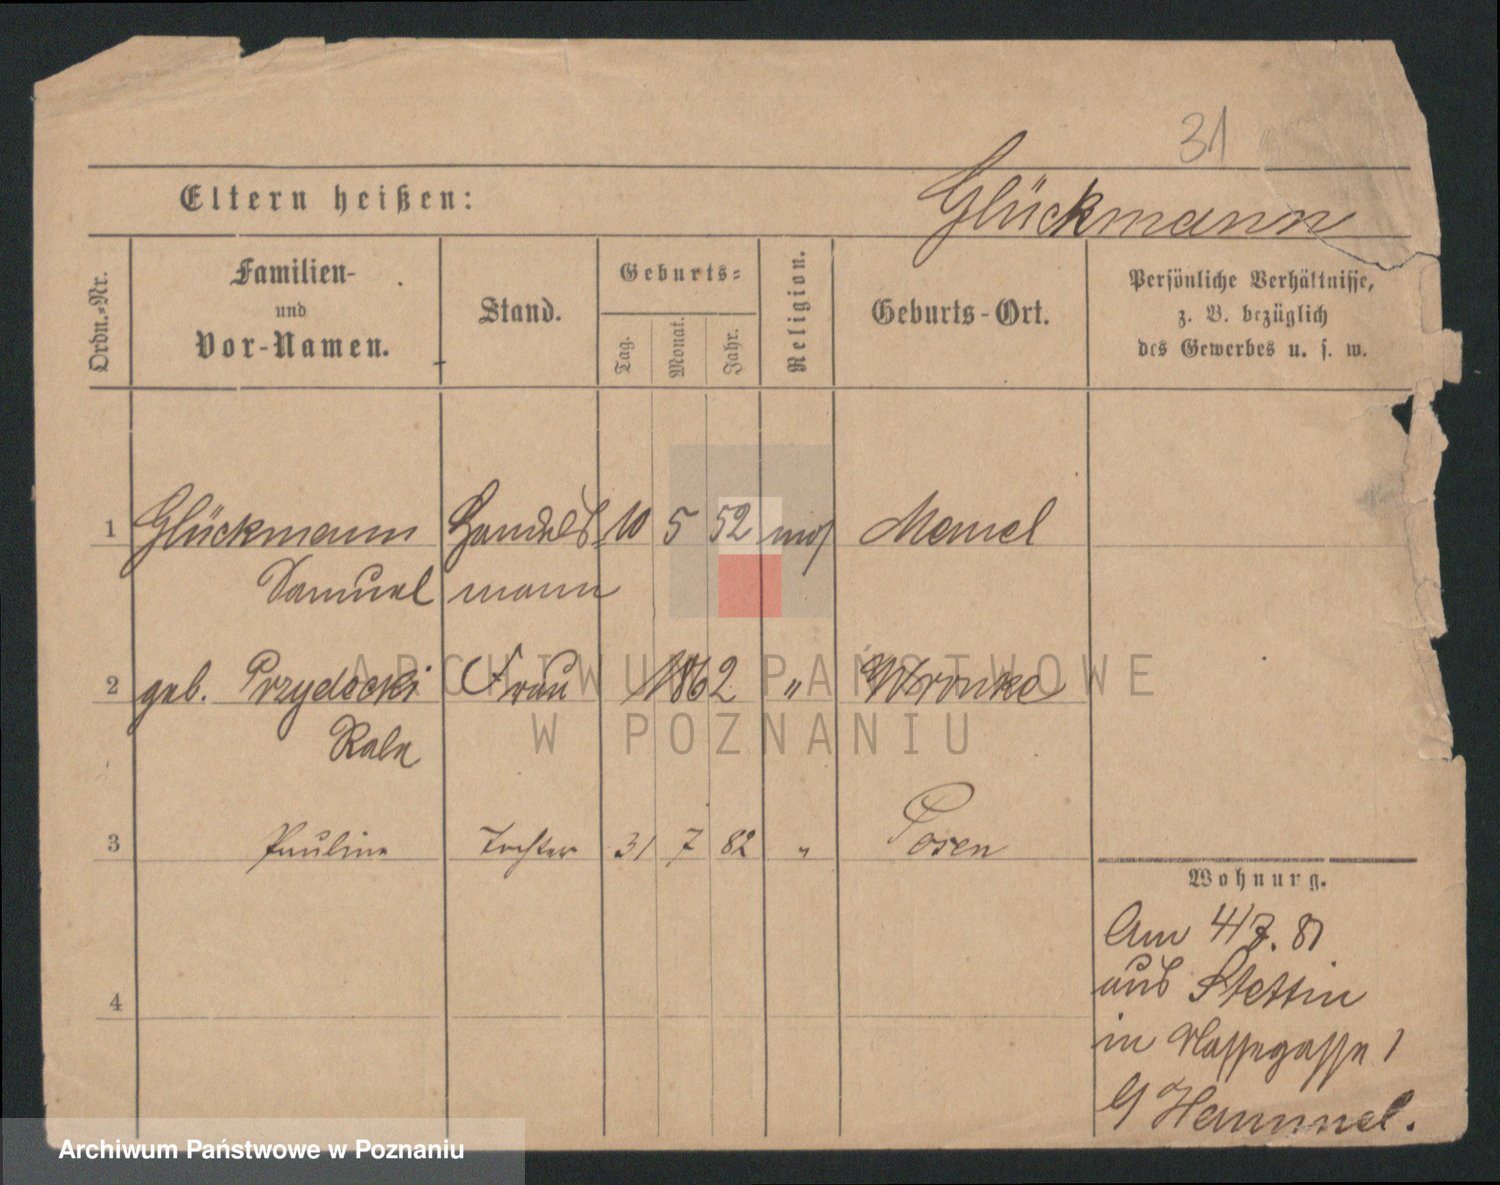 31
Eltern heißen:
Glückmann
Ordn.-Nr.
Familien-
und
Vor-Namen.
Stand.
Geburts-
Tag.
Monat.
Jahr.
Religion.
Geburts-Ort.
Persönliche Verhältnisse,
z. B. bezüglich
des Gewerbes u. s. w.
1 Glückmann Handels- 10 5 52 mos Memel
Samuel mann
2 geb. Przydecki Frau 1862 " Wronke
3 Pauline Tochter 31 7 82 " Posen
Wohnung.
Am 4/7. 81
aus Stettin
in Nassegasse 1
b/ Hammel.
4
ARCHIWUM PAŃSTWOWE
W POZNANIU
Archiwum Państwowe w Poznaniu